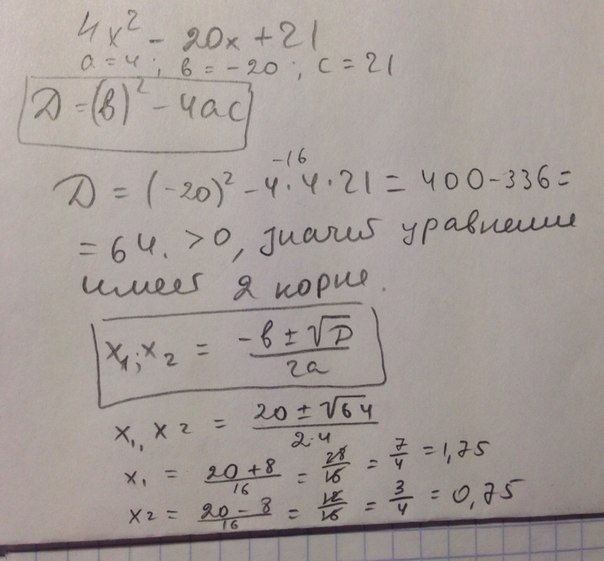 4x² - 20x + 21
a = 4; в = -20; c = 21
D = (в)² - 4ac
-16
D = (-20)² - 4·4·21 = 400 - 336 =
= 64. > 0, значит уравнение
имеет 2 корне.
x₁; x₂ = (-в ± √D)/2a
x₁, x₂ = (20 ± √64)/2·4
x₁ = (20 + 8)/16 = 28/16 = 7/4 = 1,75
x₂ = (20 - 8)/16 = 12/16 = 3/4 = 0,75